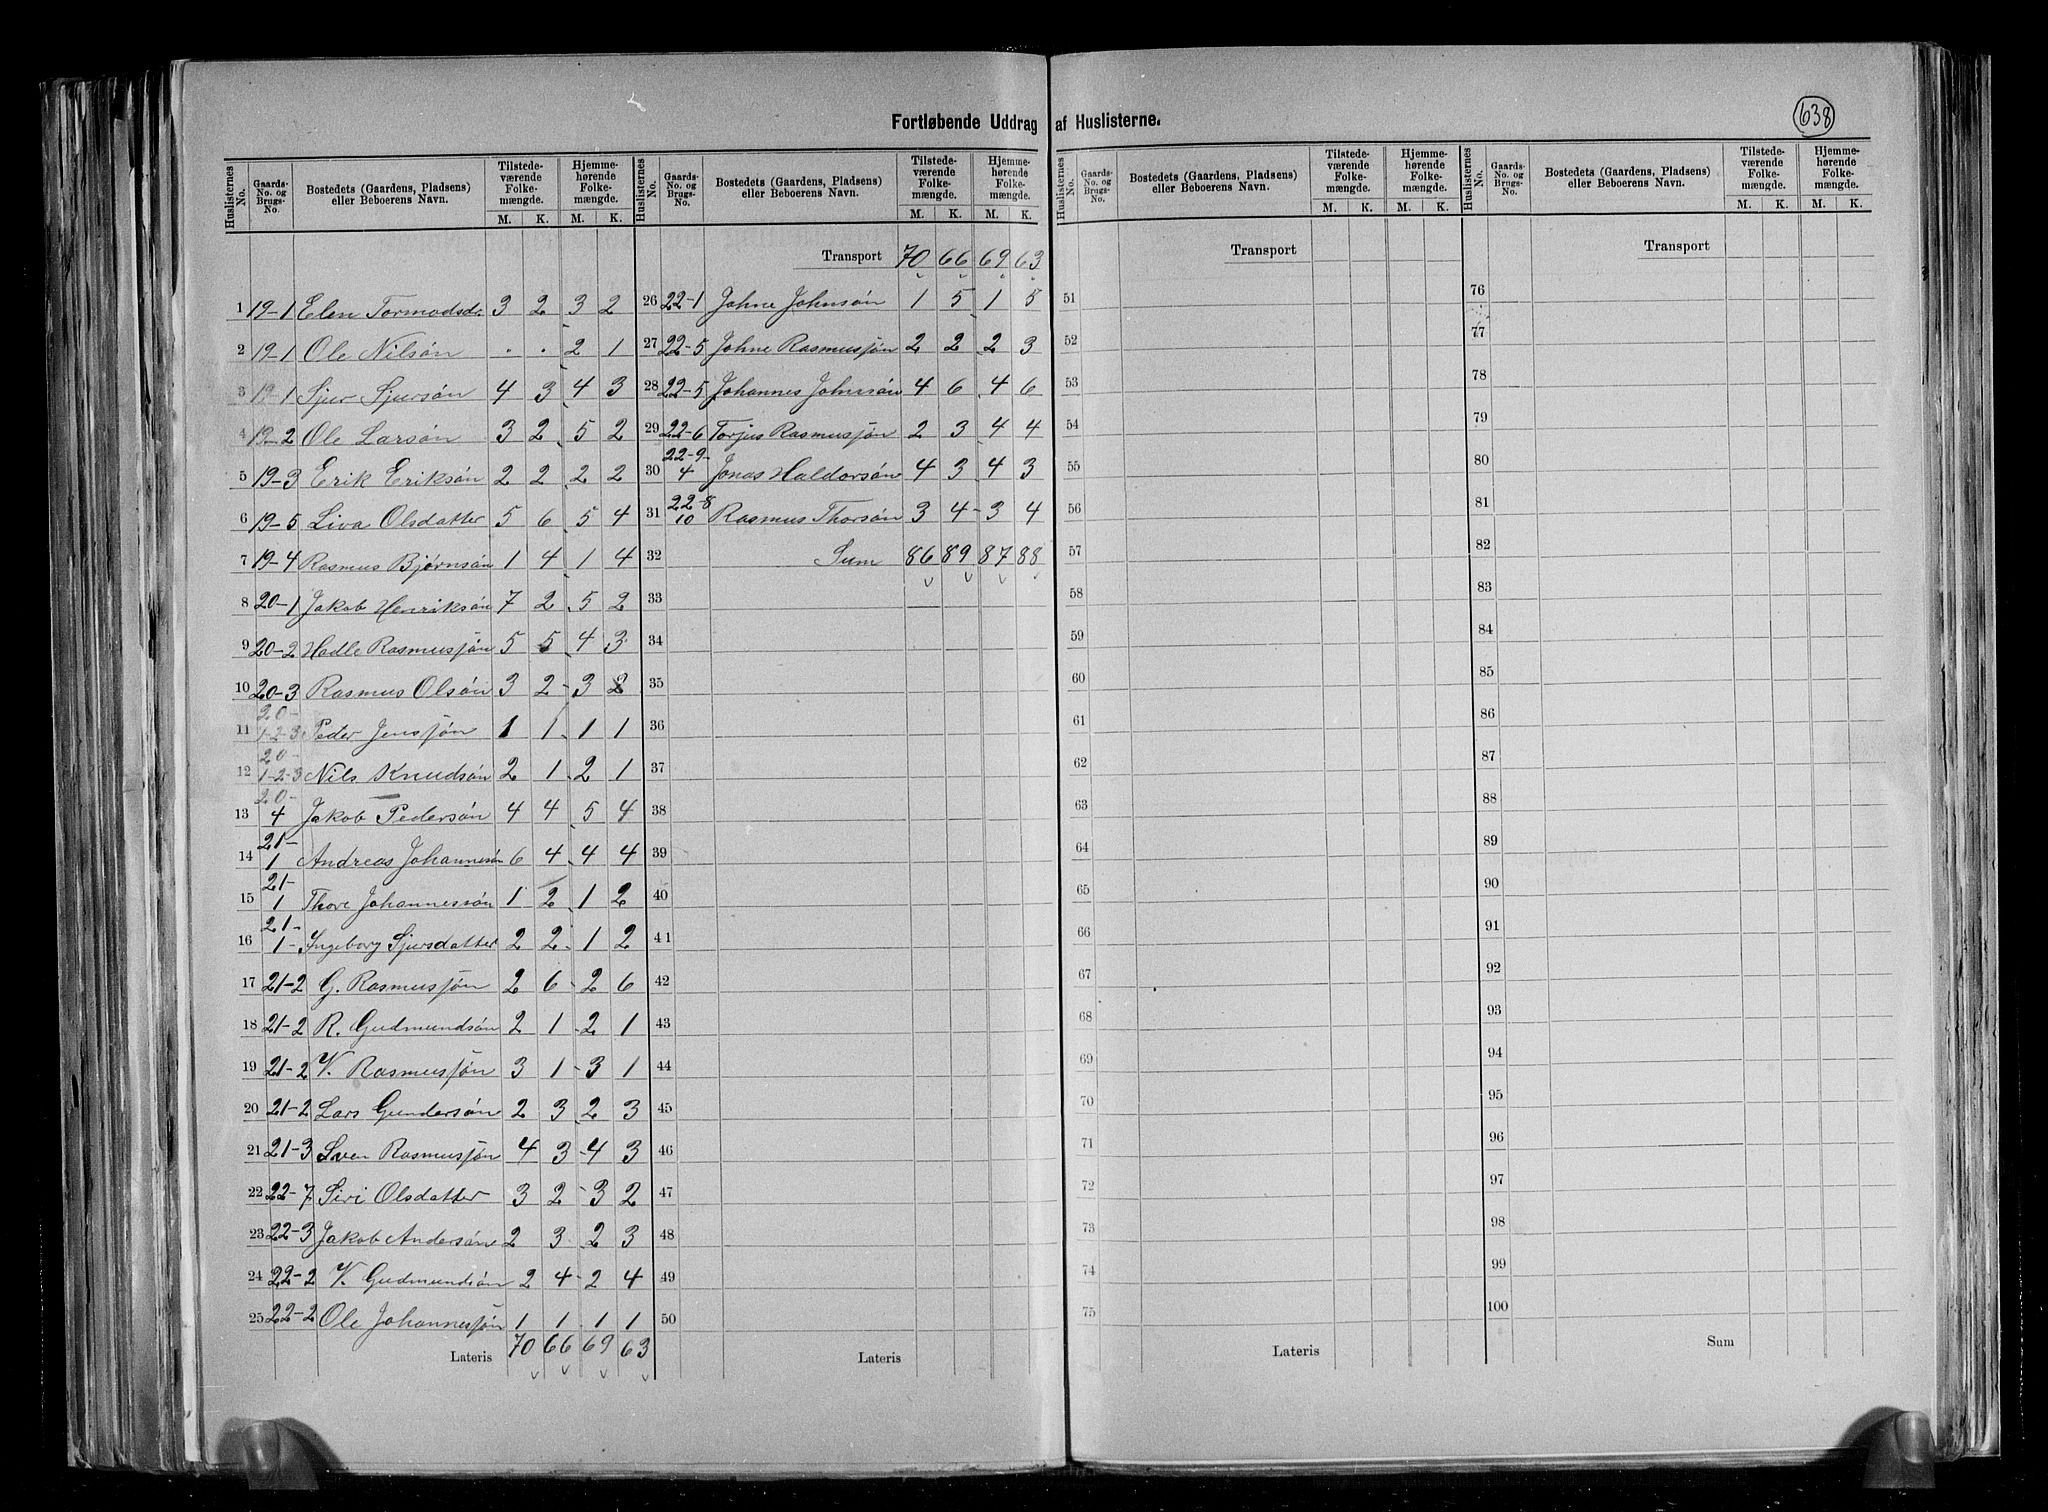 Fortløbende Uddrag af Huslisterne.
638
Huslisternes No. Gaards-No. og Brugs-No. Bostedets (Gaardens, Pladsens) eller Beboerens Navn. Tilstedeværende Folkemængde. M. K. Hjemmehørende Folkemængde. M. K.
1 19-1 Elen Tormodsdr. 3 2 3 2
2 19-1 Ole Nilsøn . . 2 1
3 19-1 Sjur Sjursøn 4 3 4 3
4 19-2 Ole Larsøn 3 2 5 2
5 19-3 Erik Eriksøn 2 2 2 2
6 19-5 Liva Olsdatter 5 6 5 4
7 19-4 Rasmus Bjørnsøn 1 4 1 4
8 20-1 Jakob Henriksøn 7 2 5 2
9 20-2 Hadle Rasmussøn 5 5 4 3
10 20-3 Rasmus Olsøn 3 2 3 2
11 20-1-2-3 Peder Jenssøn 1 1 1 1
12 20-1-2-3 Nils Knudsøn 2 1 2 1
13 20-4 Jakob Pedersøn 4 4 5 4
14 21-1 Andreas Johannesøn 6 4 4 4
15 21-1 Thore Johannessøn 1 2 1 2
16 21-1- Ingeborg Sjursdatter 2 2 1 2
17 21-2 G. Rasmussøn 2 6 2 6
18 21-2 R. Gudmundsøn 2 1 2 1
19 21-2 V. Rasmussøn 3 1 3 1
20 21-2 Lars Gundersøn 2 3 2 3
21 21-3 Sven Rasmussøn 4 3 4 3
22 22-7 Siri Olsdatter 3 2 3 2
23 22-3 Jakob Andersøn 2 3 2 3
24 22-2 V. Gudmundsøn 2 4 2 4
25 22-2 Ole Johannessøn 1 1 1 1
Lateris 70 66 69 63
Huslisternes No. Gaards-No. og Brugs-No. Bostedets (Gaardens, Pladsens) eller Beboerens Navn. Tilstedeværende Folkemængde. M. K. Hjemmehørende Folkemængde. M. K.
Transport 70 66 69 63
26 22-1 Johne Johnsøn 1 5 1 5
27 22-5 Johne Rasmussøn 2 2 2 3
28 22-5 Johannes Johnsøn 4 6 4 6
29 22-6 Torjus Rasmussøn 2 3 4 4
30 22-9-4 Jonas Haldorsøn 4 3 4 3
31 22-8 10 Rasmus Thorsøn 3 4 3 4
32 Sum 86 89 87 88
33
34
35
36
37
38
39
40
41
42
43
44
45
46
47
48
49
50
Lateris
Huslisternes No. Gaards-No. og Brugs-No. Bostedets (Gaardens, Pladsens) eller Beboerens Navn. Tilstedeværende Folkemængde. M. K. Hjemmehørende Folkemængde. M. K.
Transport
51
52
53
54
55
56
57
58
59
60
61
62
63
64
65
66
67
68
69
70
71
72
73
74
75
Lateris
Huslisternes No. Gaards-No. og Brugs-No. Bostedets (Gaardens, Pladsens) eller Beboerens Navn. Tilstedeværende Folkemængde. M. K. Hjemmehørende Folkemængde. M. K.
Transport
76
77
78
79
80
81
82
83
84
85
86
87
88
89
90
91
92
93
94
95
96
97
98
99
100
Sum